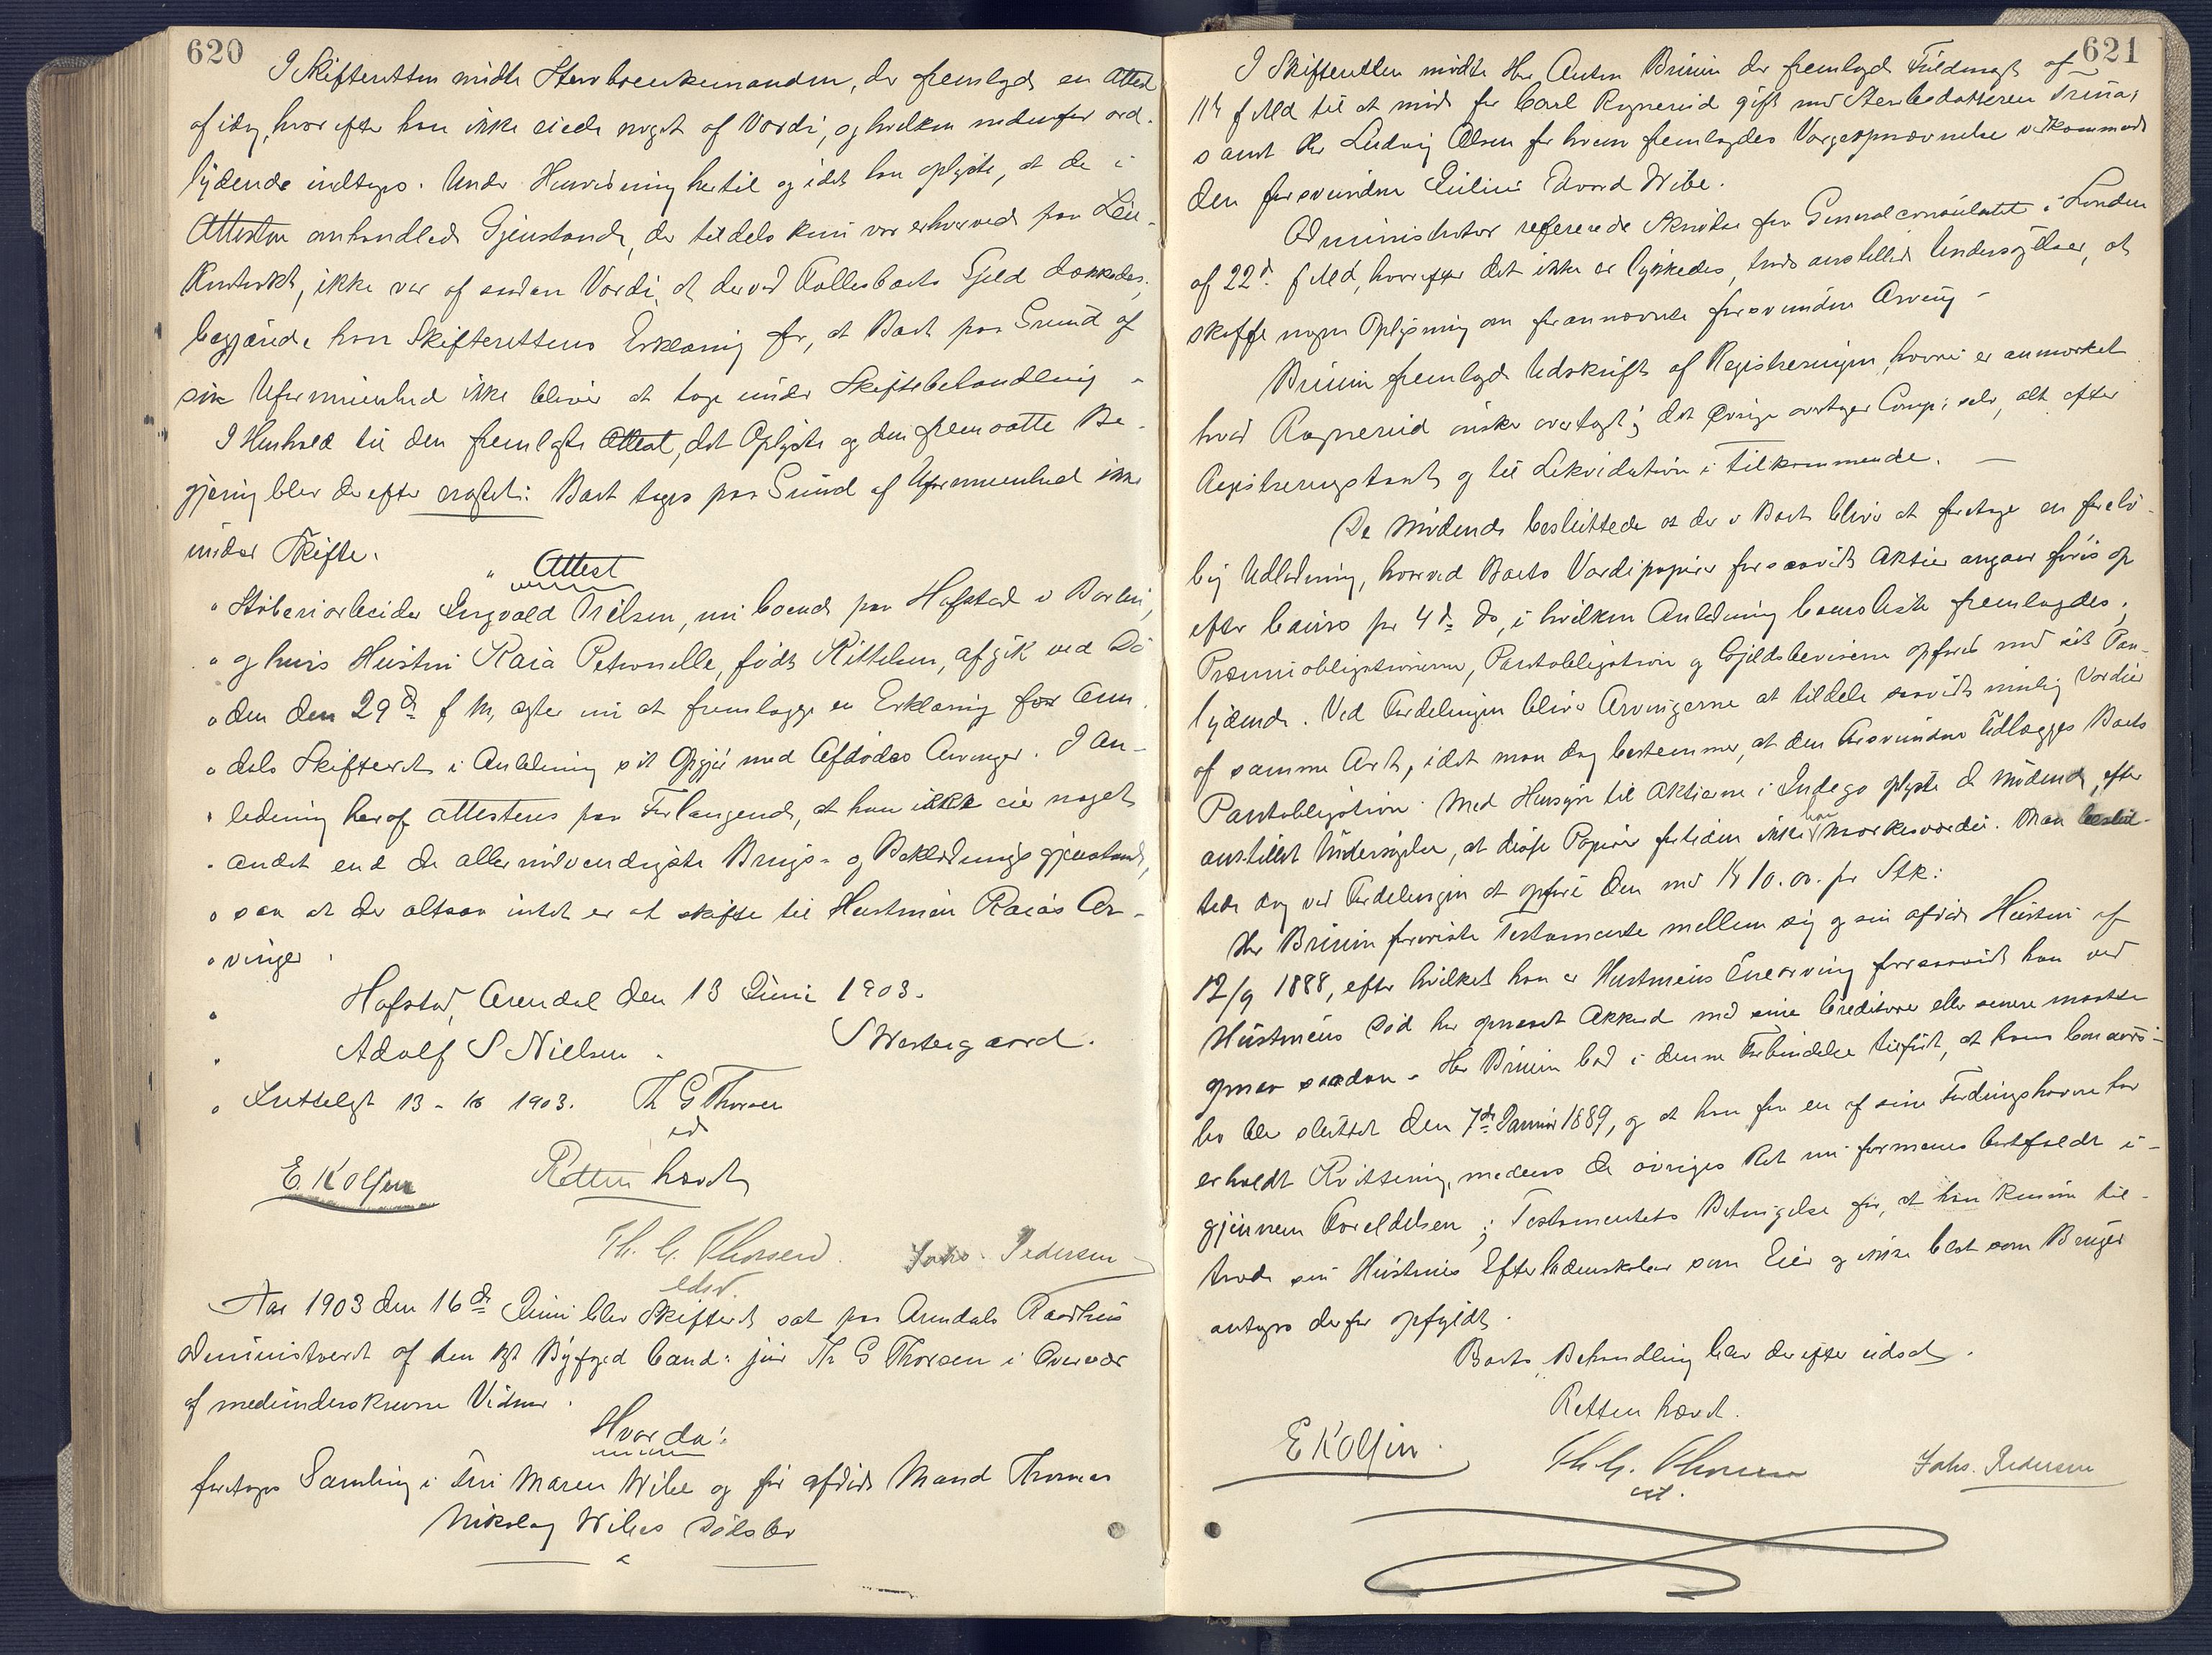 620
I Skifteretten mødte Stervboenkemanden, der fremlagde en Attest
af idag, hvorefter han ikke eiede noget af Værdi, og hvilken nedenfor ord-
lydende indtages. Under Henvisning hertil og idet han oplyste, at de i
Attesten omhandlede Gjenstande, der tildels kun var erhvervede paa Leie-
kontrakt, ikke var af saadan Værdi, at derved Fællesboets Gjeld dækkedes,
begjærede han Skifterettens Erklæring for, at Boet paa Grund af
sin Uformuenhed ikke bliver at tage under Skiftebehandling -
I Henhold til den fremlagte Attest, det Oplyste og den fremsatte Be-
gjæring blev derefter eragtet: Boet tages paa Grund af Uformuenhed ikke
under Skifte.
" Attest
" Støberiarbeider Engvald Nilsen, nu boende paa Hofstad i Barbu,
" og hvis Hustru Kaia Petronelle, født Kittelsen, afgik ved Dø-
" den den 29de f M, agter nu at fremlægge en Erklæring for Aren-
" dals Skifteret i Anledning sit Opgjør med Afdødes Arvinger. I An-
" ledning heraf attesteres paa Forlangende, at han ikke eier noget
" andet end de allernødvendigste Brugs- og Beklædningsgjenstande,
" saa at der altsaa intet er at skifte til Hustruen Kaias Ar-
" vinger.
" Hofstad, Arendal den 13 Juni 1903.
" Adolf S Nielsen. S Westergaard.
" Fremlagt 13 - 6 1903. Th G Thorsen
cst
E. Kolsen Retten hævet
Th. G. Thorsen. Johs. Pedersen
cst.
Aar 1903 den 16de Juni blev Skifteret sat paa Arendals Raadhus
administreret af den kst Byfoged Cand: jur Th G Thorsen i Overvær
af medunderskrevne Vidner.
Hvorda:
foretages Samling i Fru Maren Wibe og før afdøde Mand Thomas
Nikolay Wibes Dødsbo
621
I Skifteretten mødte Hr Anton Bruun der fremlagde Fuldmagt af
11te f Md til at møde for Carl Rognerud gift med Stervbodatteren Trina,
samt Hr Ludvig Olsen for hvem fremlagdes Værgeopnævnelse vedkommende
den forsvundne Eilius Edvard Wibe.
Administrator refererede Skrivelse fra Generalconsulatet i London
af 22de f Md, hvorefter det ikke er lykkedes, trods anstillede Undersøgelser, at
skaffe nogen Oplysning om forannævnte forsvundne Arving -
Bruun fremlagde Udskrift af Registreringen, hvori er anmærket
hvad Rognerud ønsker overtaget; det Øvrige overtager Comp: selv, alt efter
Registreringstaxt og til Likvidation i Tilkommende. -
De Mødende besluttede at der i Boet bliver at foretage en forelø-
big Udlodning, hvorved Boets Værdipapirer forsaavidt Aktier angaar føres op
efter Cours pr 4de ds, i hvilken Anledning Coursliste fremlagdes,
Præmieobligationerne, Pantobligation og Gjeldsbeviserne opføres med sit Paa-
lydende. Ved Fordelingen bliver Arvingerne at tildele saavidt mulig Værdier
af samme Art, idet man dog bestemmer, at den Forsvundne udlægges Boets
Pantobligation. Med Hensyn til Aktierne i Indego oplyste de Mødende, efter
anstillet Undersøgelse, at disse Papirer fortiden ikke har Markedsværdi. Man beslut-
tede dog ved Fordelingen at opføre dem med Kr 10.00. pr Stk:
Hr Bruun foreviste Testamente mellem sig og sin afdøde Hustru af
12/9 1888, efter hvilket han er Hustruens Enearving forsaavidt han ved
Hustruens Død har opnaaet Akkord med sine Creditorer eller senere maatte
opnaa saadan. Hr Bruun bad i denne Forbindelse tilført, at hans Concurs-
bo blev sluttet den 7de Januar 1889, og at han fra en af sine Fordringshavere har
erholdt Kvittering, medens de øvriges Ret nu formenes bortfaldt i-
gjennem Foreldelsen; Testamentets Betingelse for, at han kunne til-
træde sin Hustrus Efterladenskaber som Eier og ikke blot som Bruger
antages derfor opfyldt.
Boets Behandling blev derefter udsat.
Retten hævet.
E Kolsen. Th. G. Thorsen Johs. Pedersen
cst.